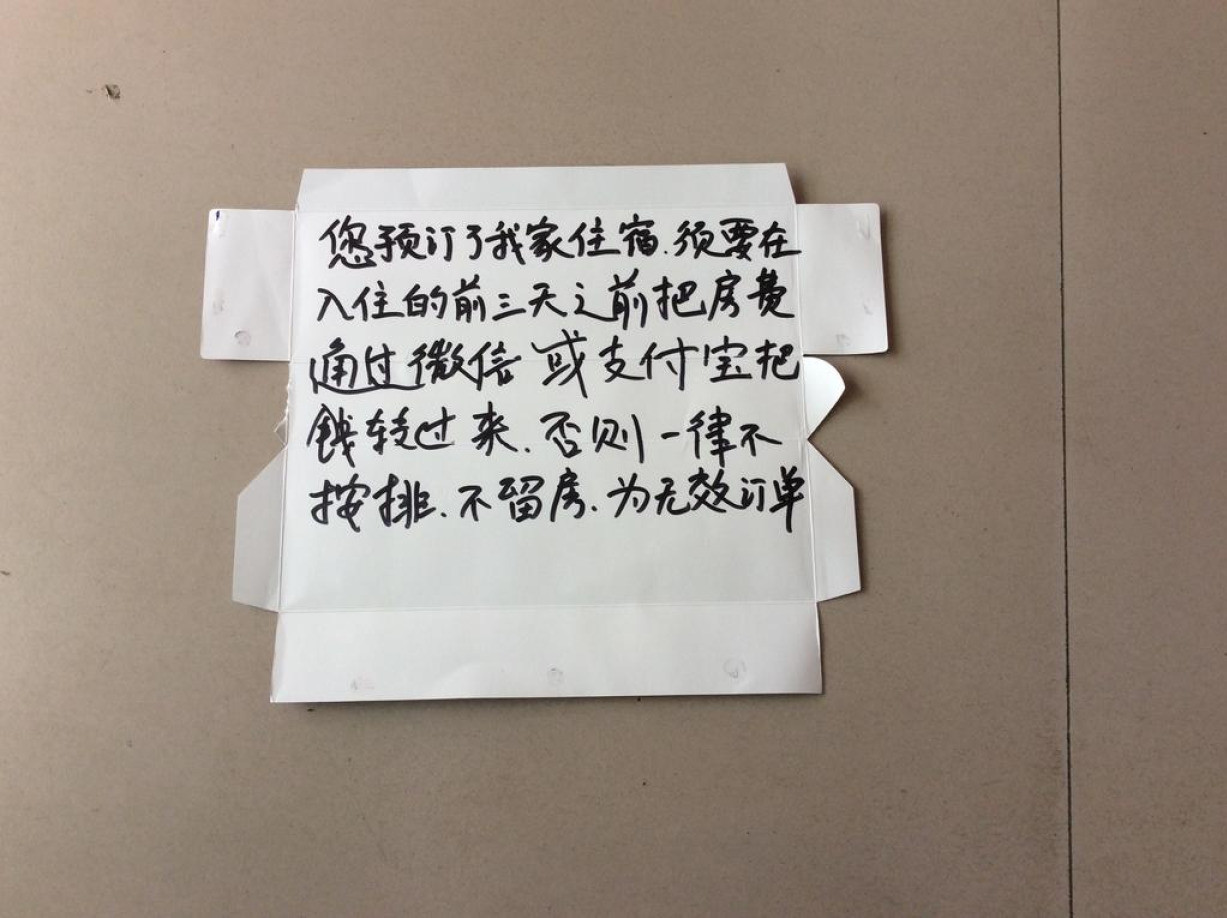 您预订了我家住宿.须要在
入住的前三天之前把房费
通过微信或支付宝把
钱转过来.否则一律不
按排.不留房.为无效订单